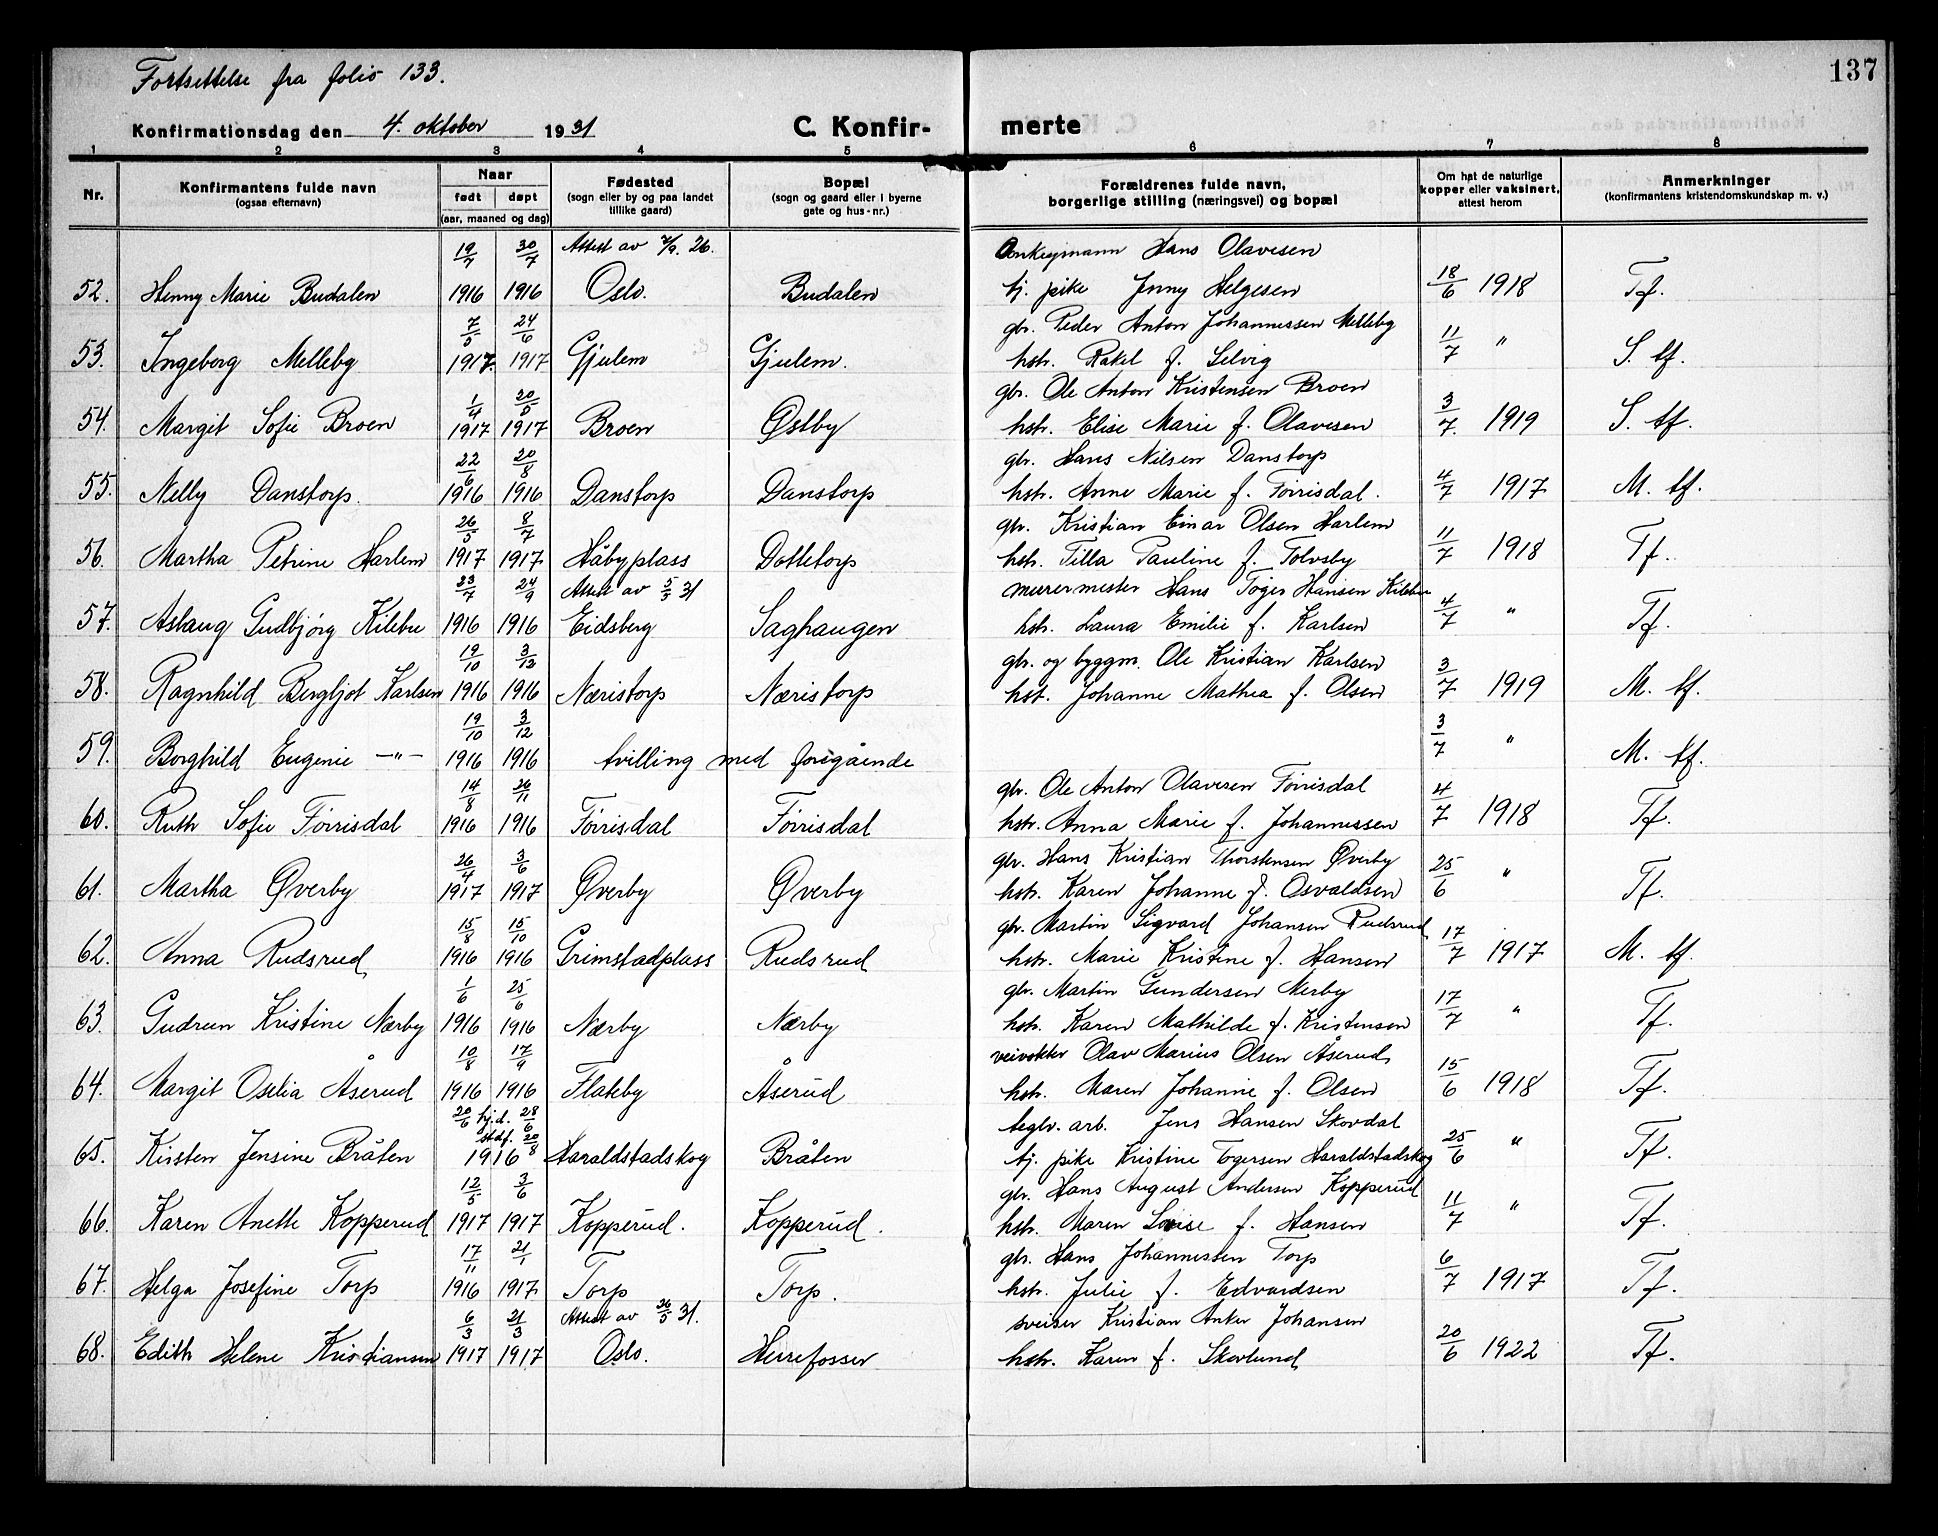 Fortsettelse fra folio 133.
137
Konfirmationsdag den 4. oktober 1931
C. Konfirmerte
1 2 3 4 5 6 7 8
Nr.
Konfirmantens fulde navn
(ogsaa efternavn)
Naar
født døpt
(aar, maaned og dag)
Fødested
(sogn eller by og paa landet
tillike gaard)
Bopæl
(sogn og gaard eller i byerne
gate og hus-nr.)
Forældrenes fulde navn,
borgerlige stilling (næringsvei) og bopæl
Om hat de naturlige
kopper eller vaksinert,
attest herom
Anmerkninger
(konfirmantens kristendomskundskap m. v.)
19/7 30/7 Attest av 7/9. 26. Hans Olavesen
52. Henny Marie Budalen 1916 1916 Oslo. Budalen tj. pike Jenny Helgesen 18/6 1918 Tf.
7/5 24/6 gbr. Peder Anton Johannessen Melleby
53. Ingeborg Melleby 1917. 1917 Gjulem Gjulem. hstr. Rakel f. Selvig 11/7 " S. tf.
1/4 20/5 gbr. Ole Anton Kristensen Broen
54. Margit Sofie Broen 1917 1917 Broen Østby hstr. Elise Marie f. Olavesen 3/7. 1919 S. tf.
22/6 20/8 gbr. Hans Nilsen Danstorp
55. Nelly Danstorp. 1916 1916 Danstorp Danstorp hstr. Anne Marie f. Torrisdal. 4/7 1917 M. tf.
26/5 8/7 gbr. Kristian Einar Olsen Harlem
56. Martha Petrine Harlem 1917 1917 Håbyplass Dottetorp hstr. Tilla Pauline f. Tolvsby 11/7 1918 Tf.
23/7 24/9 Attest av 5/5 31 murermester Hans Toger Hansen Kilebu
57. Aslaug Gudbjörg Kilebu 1916 1916 Eidsberg Saghaugen hstr. Laura Emilie f. Karlsen 4/7 " Tf.
19/10 3/12 gbr. og byggm. Ole Kristian Karlsen
58. Ragnhild Bergljot Karlsen 1916 1916 Næristorp Næristorp hst. Johanne Mathea f. Olsen 3/7 1919 M. tf.
19/10 3/12
59. Borghild Eugenie —"— 1916 1916 tvilling med forigående 3/7 " M. tf.
14/8 26/11 gbr. Ole Anton Olavesen Torrisdal
60. Ruth Sofie Torrisdal 1916 1916 Torrisdal Torrisdal hstr. Anna Marie f. Johannessen 4/7 1918 Tf.
26/4 3/6 gbr. Hans Kristian Thorstensen Øverby
61. Martha Øverby 1917 1917 Øverby Øverby hstr. Karen Johanne f. Osvaldsen 25/6 " Tf.
15/8 15/10 gbr. Martin Sigvard Johansen Rudsrud
62. Anna Rudsrud 1916 1916 Grimstadplass Rudsrud hstr. Marie Kristine f. Hansen 17/7 1917 M. tf.
1/6 25/6 gbr. Martin Gundersen Nerby
63. Gudrun Kristine Nærby 1916 1916 Nærby Nærby hstr. Karen Mathilde f. Kristensen 17/7 " Tf.
10/8 17/9 veivokter Olav Marius Olsen Åserud
64. Margit Osilia Åserud 1916 1916 Flateby Åserud hstr. Maren Johanne f. Olsen 15/6 1918 Tf.
20/6 hj.d. 28/6 stdf. 20/8 teglv. arb. Jens Hansen Skovdal
65. Kirsten Jensine Bråten 1916 Haraldstadskog Bråten tj. pike Kristine Togersen Haraldstadskog 25/6 " Tf.
12/5 3/6 gbr. Hans August Andersen Kopperud
66. Karen Anette Kopperud 1917 1917 Kopperud. Kopperud. hstr. Maren Lovise f. Hansen 11/7 " Tf.
17/11 21/1 gbr. Hans Johannessen Torp
67. Helga Josefine Torp 1916 1917 Torp Torp. hstr. Julie f. Edvardsen 6/7 1917 Tf.
6/3 21/3 Attest av 26/5 31. sveiser Kristian Anker Johansen
68. Edith Helene Kristiansen 1917 1917 Oslo. Herrefosser hstr. Karen f. Skovlund 20/6 1922 Tf.